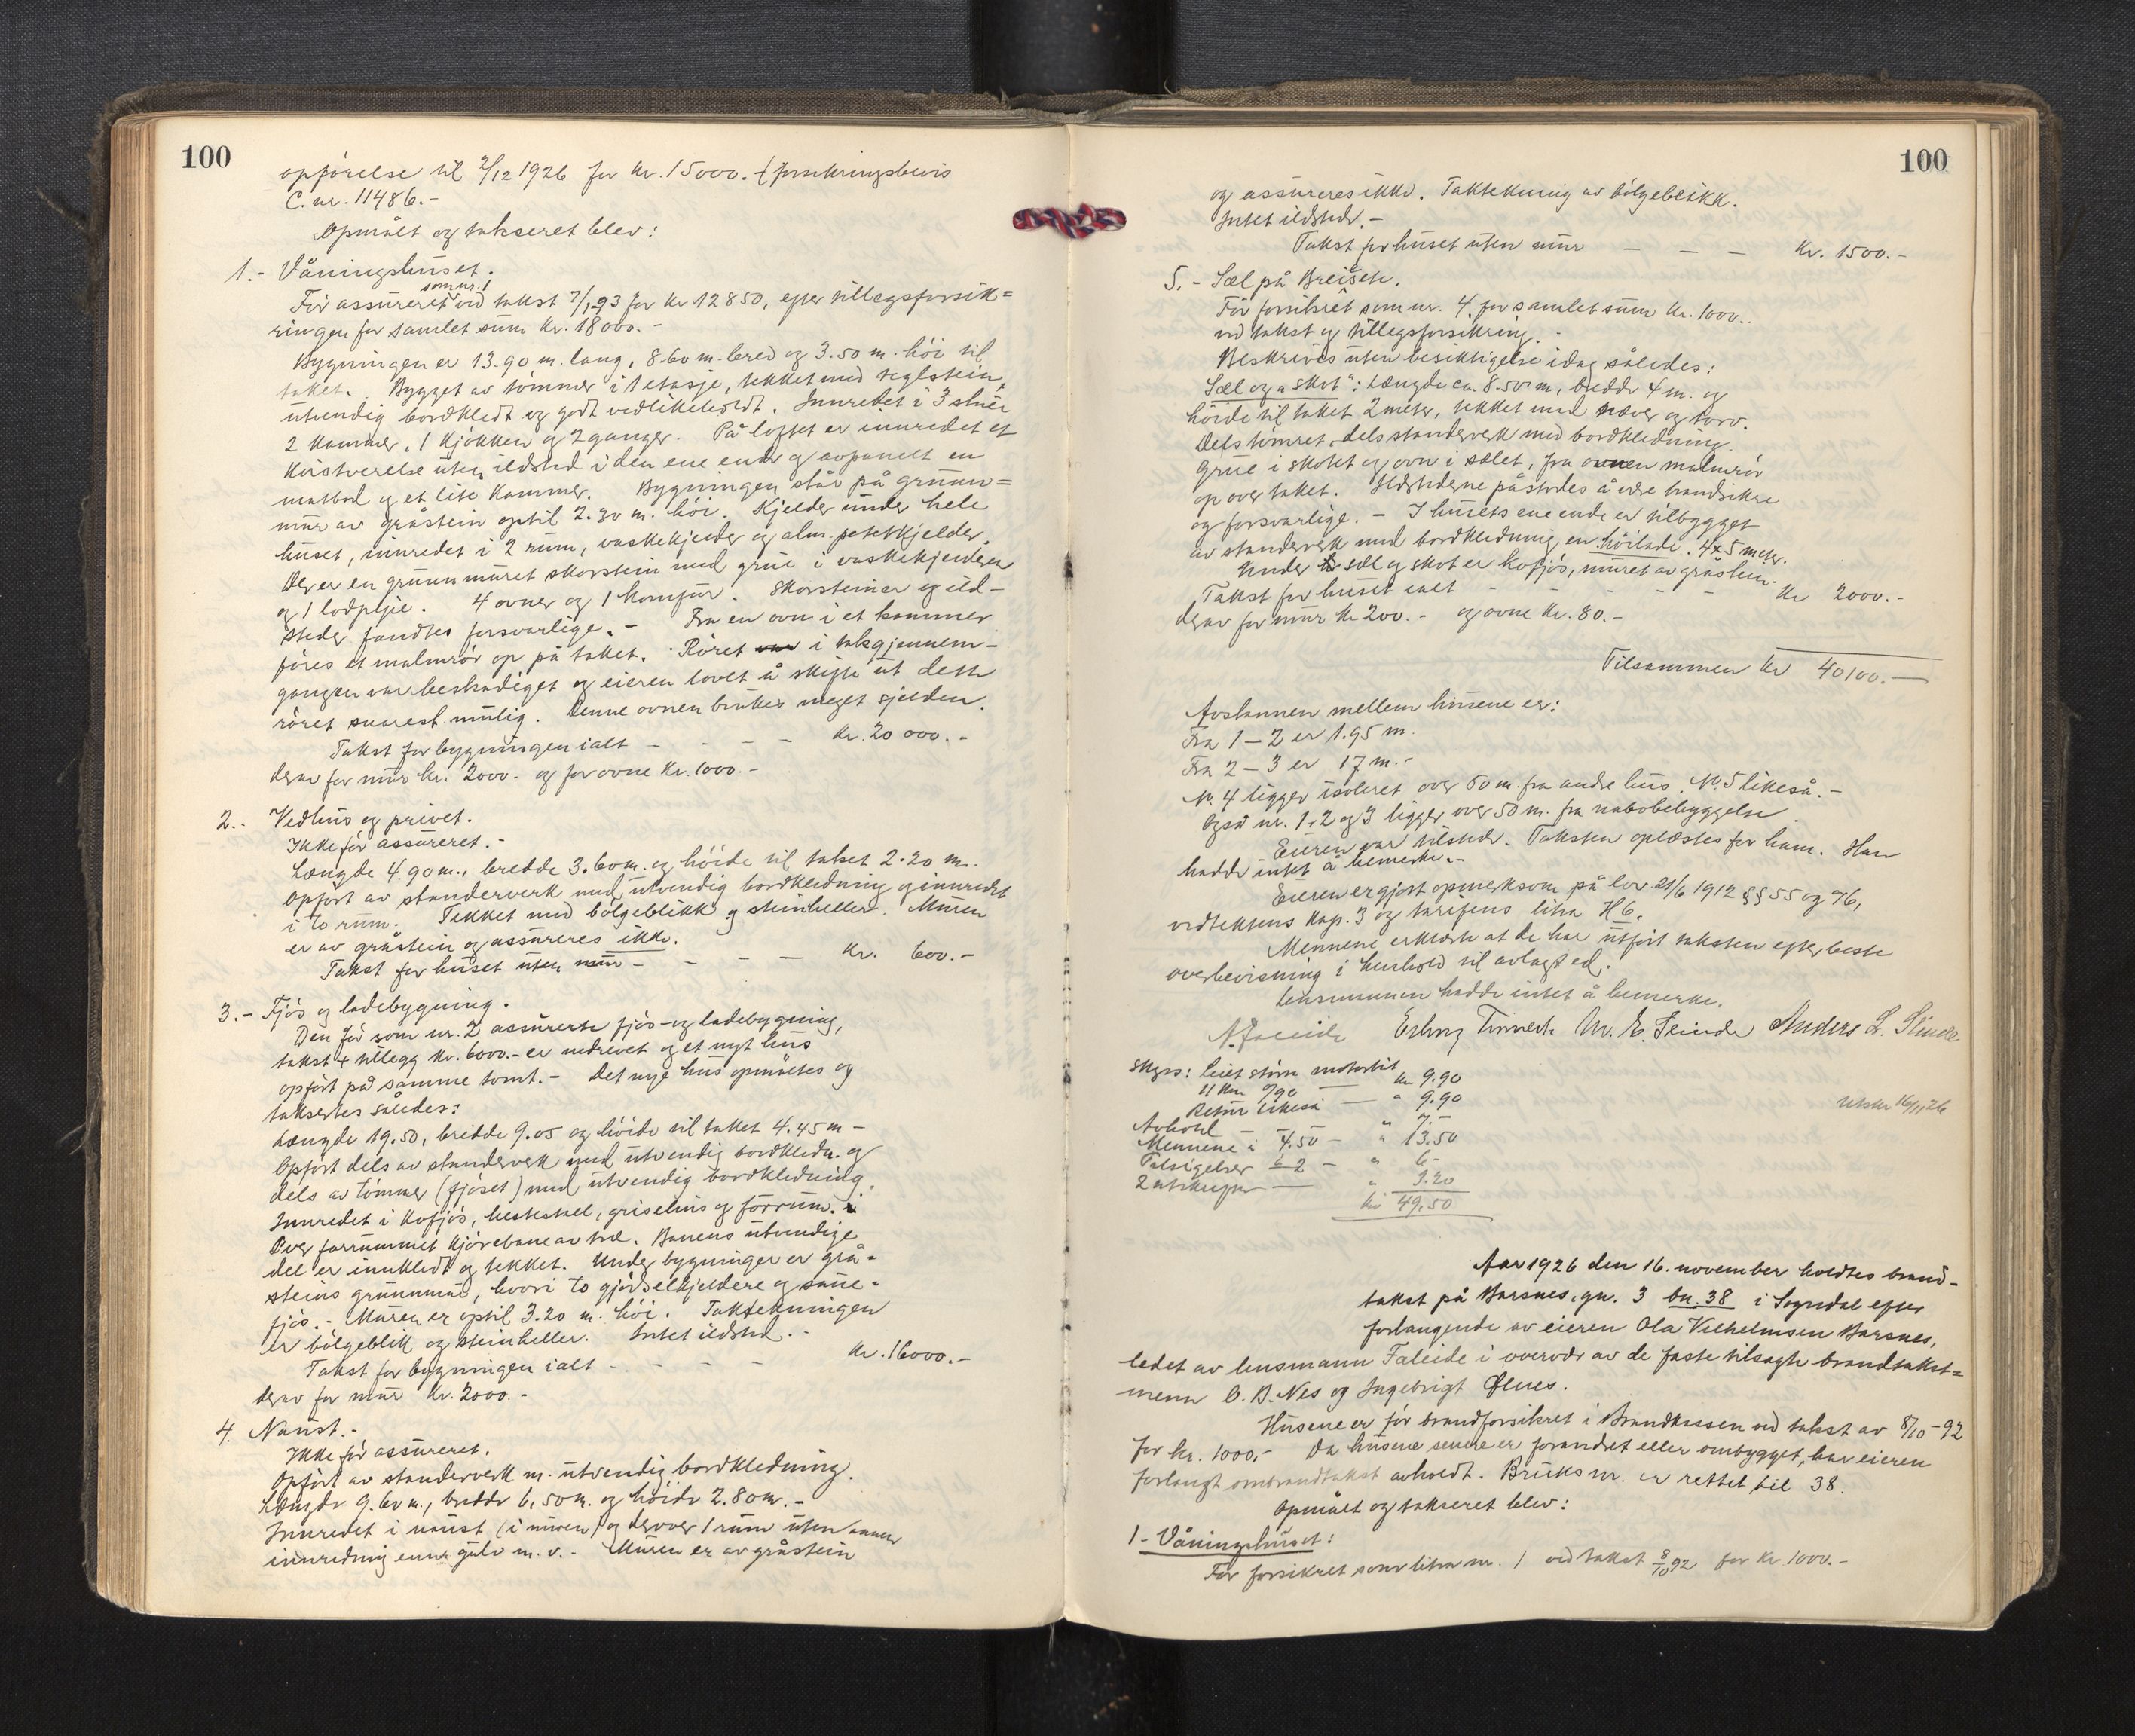 100
opførelse til 2/12 1926 for kr. 15000. - forsikringsbevis
C. nr. 11486.-
Opmålt og taksert blev:
1.- Våningshuset.
som nr. 1
Før assureret ved takst 7/1-93 for kr 12850, efter tillegsforsik=
ringen for samlet sum kr. 18000.-
Bygningen er 13.90 m. lang, 8.60 m. bred og 3.50 m. høi til
taket. Bygget av tømmer i 1 etasje, tekket med teglstein,
utvendig bordkledt og godt vedlikeholdt. Innredet i 3 stuer
2 kammer, 1 kjøkken og 2 ganger. På loftet er innredet et
kvistverelse uten ildsted i den ene ende og avpanelt en
matbod og et lite kammer. Bygningen står på grunn=
mur av gråstein optil 2.30 m. høi. Kjelder under hele
huset, innredet i 2 rum, vaskekjelder og alm. potetkjelder.
Der er en grunnmuret skorstein med grue i vaskekjelderen
og 1 lodpipe. 4 ovner og 1 komfur. Skorsteiner og ild-
steder fandtes forsvarlige. - Fra en ovn i et kammer
føres et malmrør op på taket. Røret var i takgjennem-
gangen var beskadiget og eieren lovet å skifte ut dette
røret snarest mulig. Denne ovnen brukes meget sjelden.
Takst for bygningen ialt - - - - kr. 20 000.-
derav for mur kr. 2000.- og for ovne kr. 1000.-
2.- Vedhus og privet.
Ikke før assureret.-
Længde 4.90 m., bredde 3.60 m. og høide til taket 2.20 m.
Opført av standerverk med utvendig bordkledning og innredet
i to rum. Tekket med bølgeblikk og steinheller. Muren
er av gråstein og assureres ikke.
Takst for huset uten mur - - - - kr. 600.-
3.- Fjøs og ladebygning.
Den før som nr. 2 assurerte fjøs- og ladebygning,
takst + tillegg kr. 6000.- er nedrevet og et nyt hus
opført på samme tomt.- Det nye hus opmåltes og
taksertes således:
Længde 19.50, bredde 9.05 og høide til taket 4.45 m -
Opført dels av standerverk med utvendig bordkledn. og
dels av tømmer (fjøset) med utvendig bordkledning.
Innredet i kofjøs, hestestal, grisehus og forrum.
Over forrummet kjørebane av tre. Banens utvendige
del er innkledt og tekket. Under bygningen er grå-
steins grunnmur, hvori to gjødselkjeldere og saue-
fjøs.- Muren er optil 3.20 m. høi. Taktekningen
er bølgeblik og steinheller. Intet ildsted.-
Takst for bygningen ialt - - - - kr. 16000.-
derav for mur kr. 2000.-
4. Naust.-
Ikke før assureret.
Opført av standerverk m. utvendig bordkledning.
Længde 9.60 m., bredde 6,50 m. og høide 2.80 m.-
Innredet i naust (i muren) og derover 1 rum uten annen
innredning enn gulv m. v.- Muren er av gråstein
100
og assureres ikke. Taktekning av bølgeblikk.
Intet ildsted.-
Takst for huset uten mur - - - kr. 1500.-
5.- Sæl på Breisete.
Før forsikret som nr. 4, for samlet sum kr. 1000..
ved takst og tillegsforsikring.-
Beskrives uten besiktigelse idag således:
Sæl og "skot": Længde ca. 8.50 m, bredde 4 m. og
høide til taket 2 meter, tekket med næver og torv.
Dels tømret, dels standerverk med bordkledning.
Grue i skotet og ovn i sælet, fra ovnen malmrør
op over taket. Ildstederne påstodes å være brandsikre
og forsvarlige.- I husets ene ende er tilbygget
av standerverk med bordkledning en høilade. 4x5 meter.
Under sæl og skot er kofjøs, muret av gråstein.
Takst for huset ialt - - - - - kr 2000.-
derav for mur kr 200.- og ovne kr. 80.-
Tilsammen kr 40100.-
Avstannen mellem husene er:
Fra 1-2 er 1.95 m.
Fra 2-3 er 17 m.-
Nr. 4 ligger isoleret over 50 m. fra andre hus. Nr. 5 likeså.-
Også nr. 1, 2 og 3 ligger over 50 m. fra nabobebyggelse.
Eieren var tilstede. Taksten oplæstes for ham. Han
hadde intet å bemerke.-
Eieren er gjort opmerksom på lov 21/6 1912 §§ 55 og 76,
vedtektens kap. 3 og tarifens litra H6.
Mennene erklærte at de har utført taksten efter beste
overbevisning i henhold til avlagt ed.
Lensmannen hadde intet å bemerke.
N. Faleide Erling M. E. Slinde Anders L. Slinde
Skyss: leiet større motorbåt
11 km. 0/90 - kr 9.90
Retur likeså - " 9.90
Avhold - - " 7.-
Mennene à 4.50 - " 13.50
Tilsigelser à 2 - " 6-
2 utskrifter - " 3.20
kr 49.50
Utskr 16/11 26
Aar 1926 den 16. november holdtes brand-
takst på Barsnes, gn. 3 bn. 38 i Sogndal efter
forlangende av eieren Ola Vilhelmsen Barsnes,
ledet av lensmann Faleide i overvær av de faste tilsagte brandtakst=
menn O. B. Nes og Ingebrigt Ølnes.
Husene er før brandforsikret i Brandkassen ved takst av 8/10-92
for kr. 1000.- Da husene senere er forandret eller ombygget, har eieren
forlangt ombrandtakst avholdt. Bruks nr. er rettet til 38.
Opmålt og takseret blev:
1- Våningshuset:
Før forsikret som litra nr. 1 ved takst 8/10 92 for kr. 1000.-